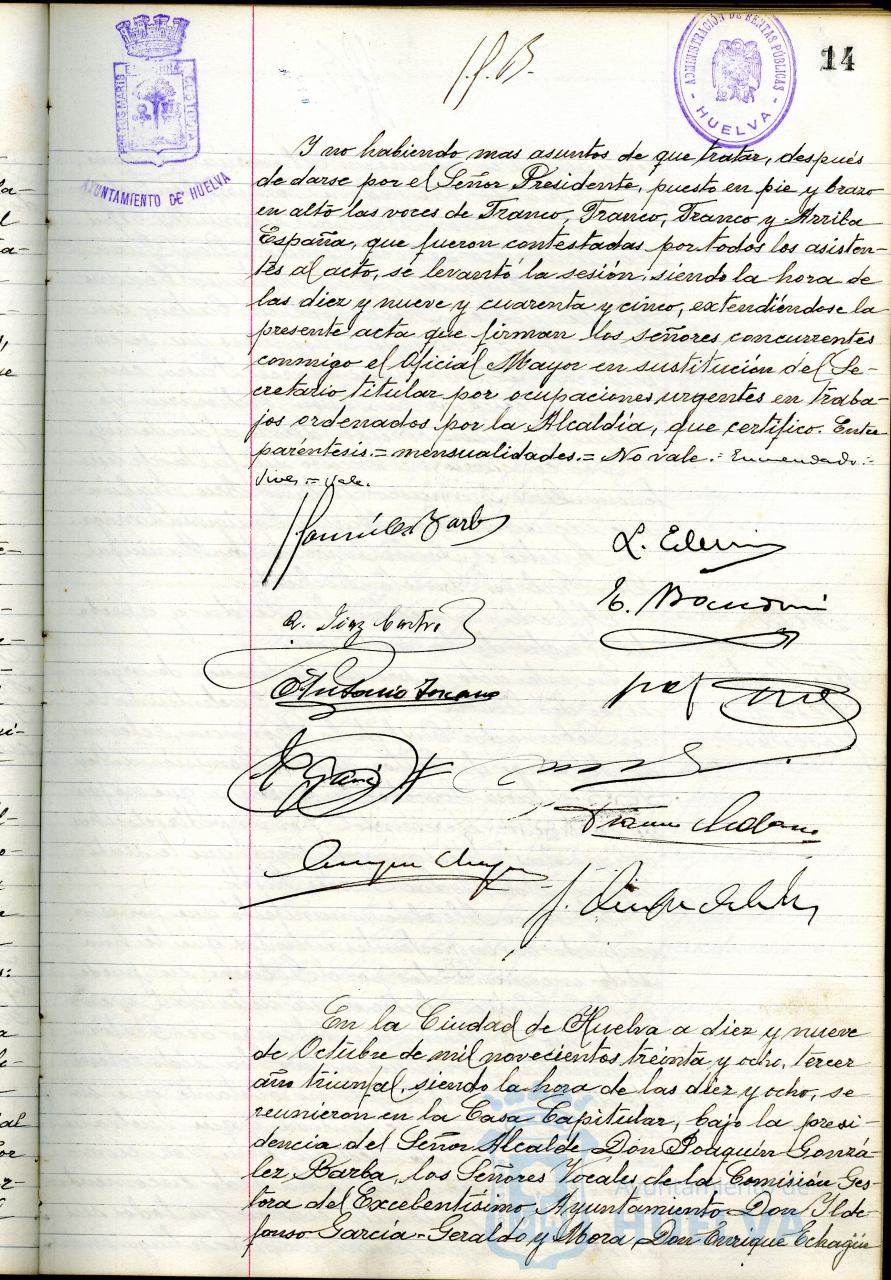 14
ADMINISTRACIÓN DE RENTAS PÚBLICAS
HUELVA
AYUNTAMIENTO DE HUELVA
Y no habiendo mas asuntos de que tratar, después
de darse por el Señor Presidente, puesto en pie y brazo
en alto las voces de Franco, Franco, Franco y Arriba
España, que fueron contestadas por todos los asisten-
tes al acto, se levantó la sesión, siendo la hora de
las diez y nueve y cuarenta y cinco, extendiéndose la
presente acta que firman los señores concurrentes
conmigo el Oficial Mayor en sustitución del Se-
cretario titular por ocupaciones urgentes en traba-
jos ordenados por la Alcaldía, que certifico. Entre
paréntesis.= mensualidades.= No vale.= Enmendado.=
= vale.
González Barba
A. Díaz Castro
Antonio Toscano
En la Ciudad de Huelva a diez y nueve
de Octubre de mil novecientos treinta y ocho, tercer
año triunfal, siendo la hora de las diez y ocho, se
reunieron en la Casa Capitular, bajo la presi-
dencia del Señor Alcalde Don Joaquín Gonzá-
lez Barba, los Señores Vocales de la Comisión Ges-
tora del Excelentísimo Ayuntamiento Don Ilde-
fonso García-Geraldo y Mora, Don Enrique Echagüe
Ayuntamiento de
HUELVA